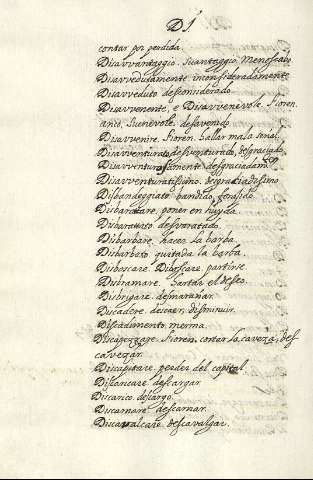 DI
contar por perdida.
Disavvantaggio. Suantaggio. Menoscabo
Disavvedutamente. inconsideradamente
Disavveduto desconsiderado.
Disavvenente, e Disavvenevole. Fioren.
anco. Suenevole. desavenido
Disavvenire. Fioren. hallar mala senal.
Disavventurato desventurado, desgraciado
Disavventurosamente desgraciadamen
Disavventuratissimo. desgraciadissimo
Disbandeggiato bandido, forasido
Disbarattare, poner en huyda.
Disbarattato. desbaratado.
Disbarbare. hacer la barba.
Disbarbato. quitada la barba
Disboscare. Diboscare. partirse
Disbramare. hartar el deseo.
Disbrigare desmarañar.
Discadere. descaer, disminuir.
Discadimento. merma.
Discapezzare. Fioren. cortar la caveza, des
cavezar.
Discapitare. perder del capital
Discaricare descargar
Discarico. descargo.
Discarnare descarnar.
Discavalcare. descavalgar.